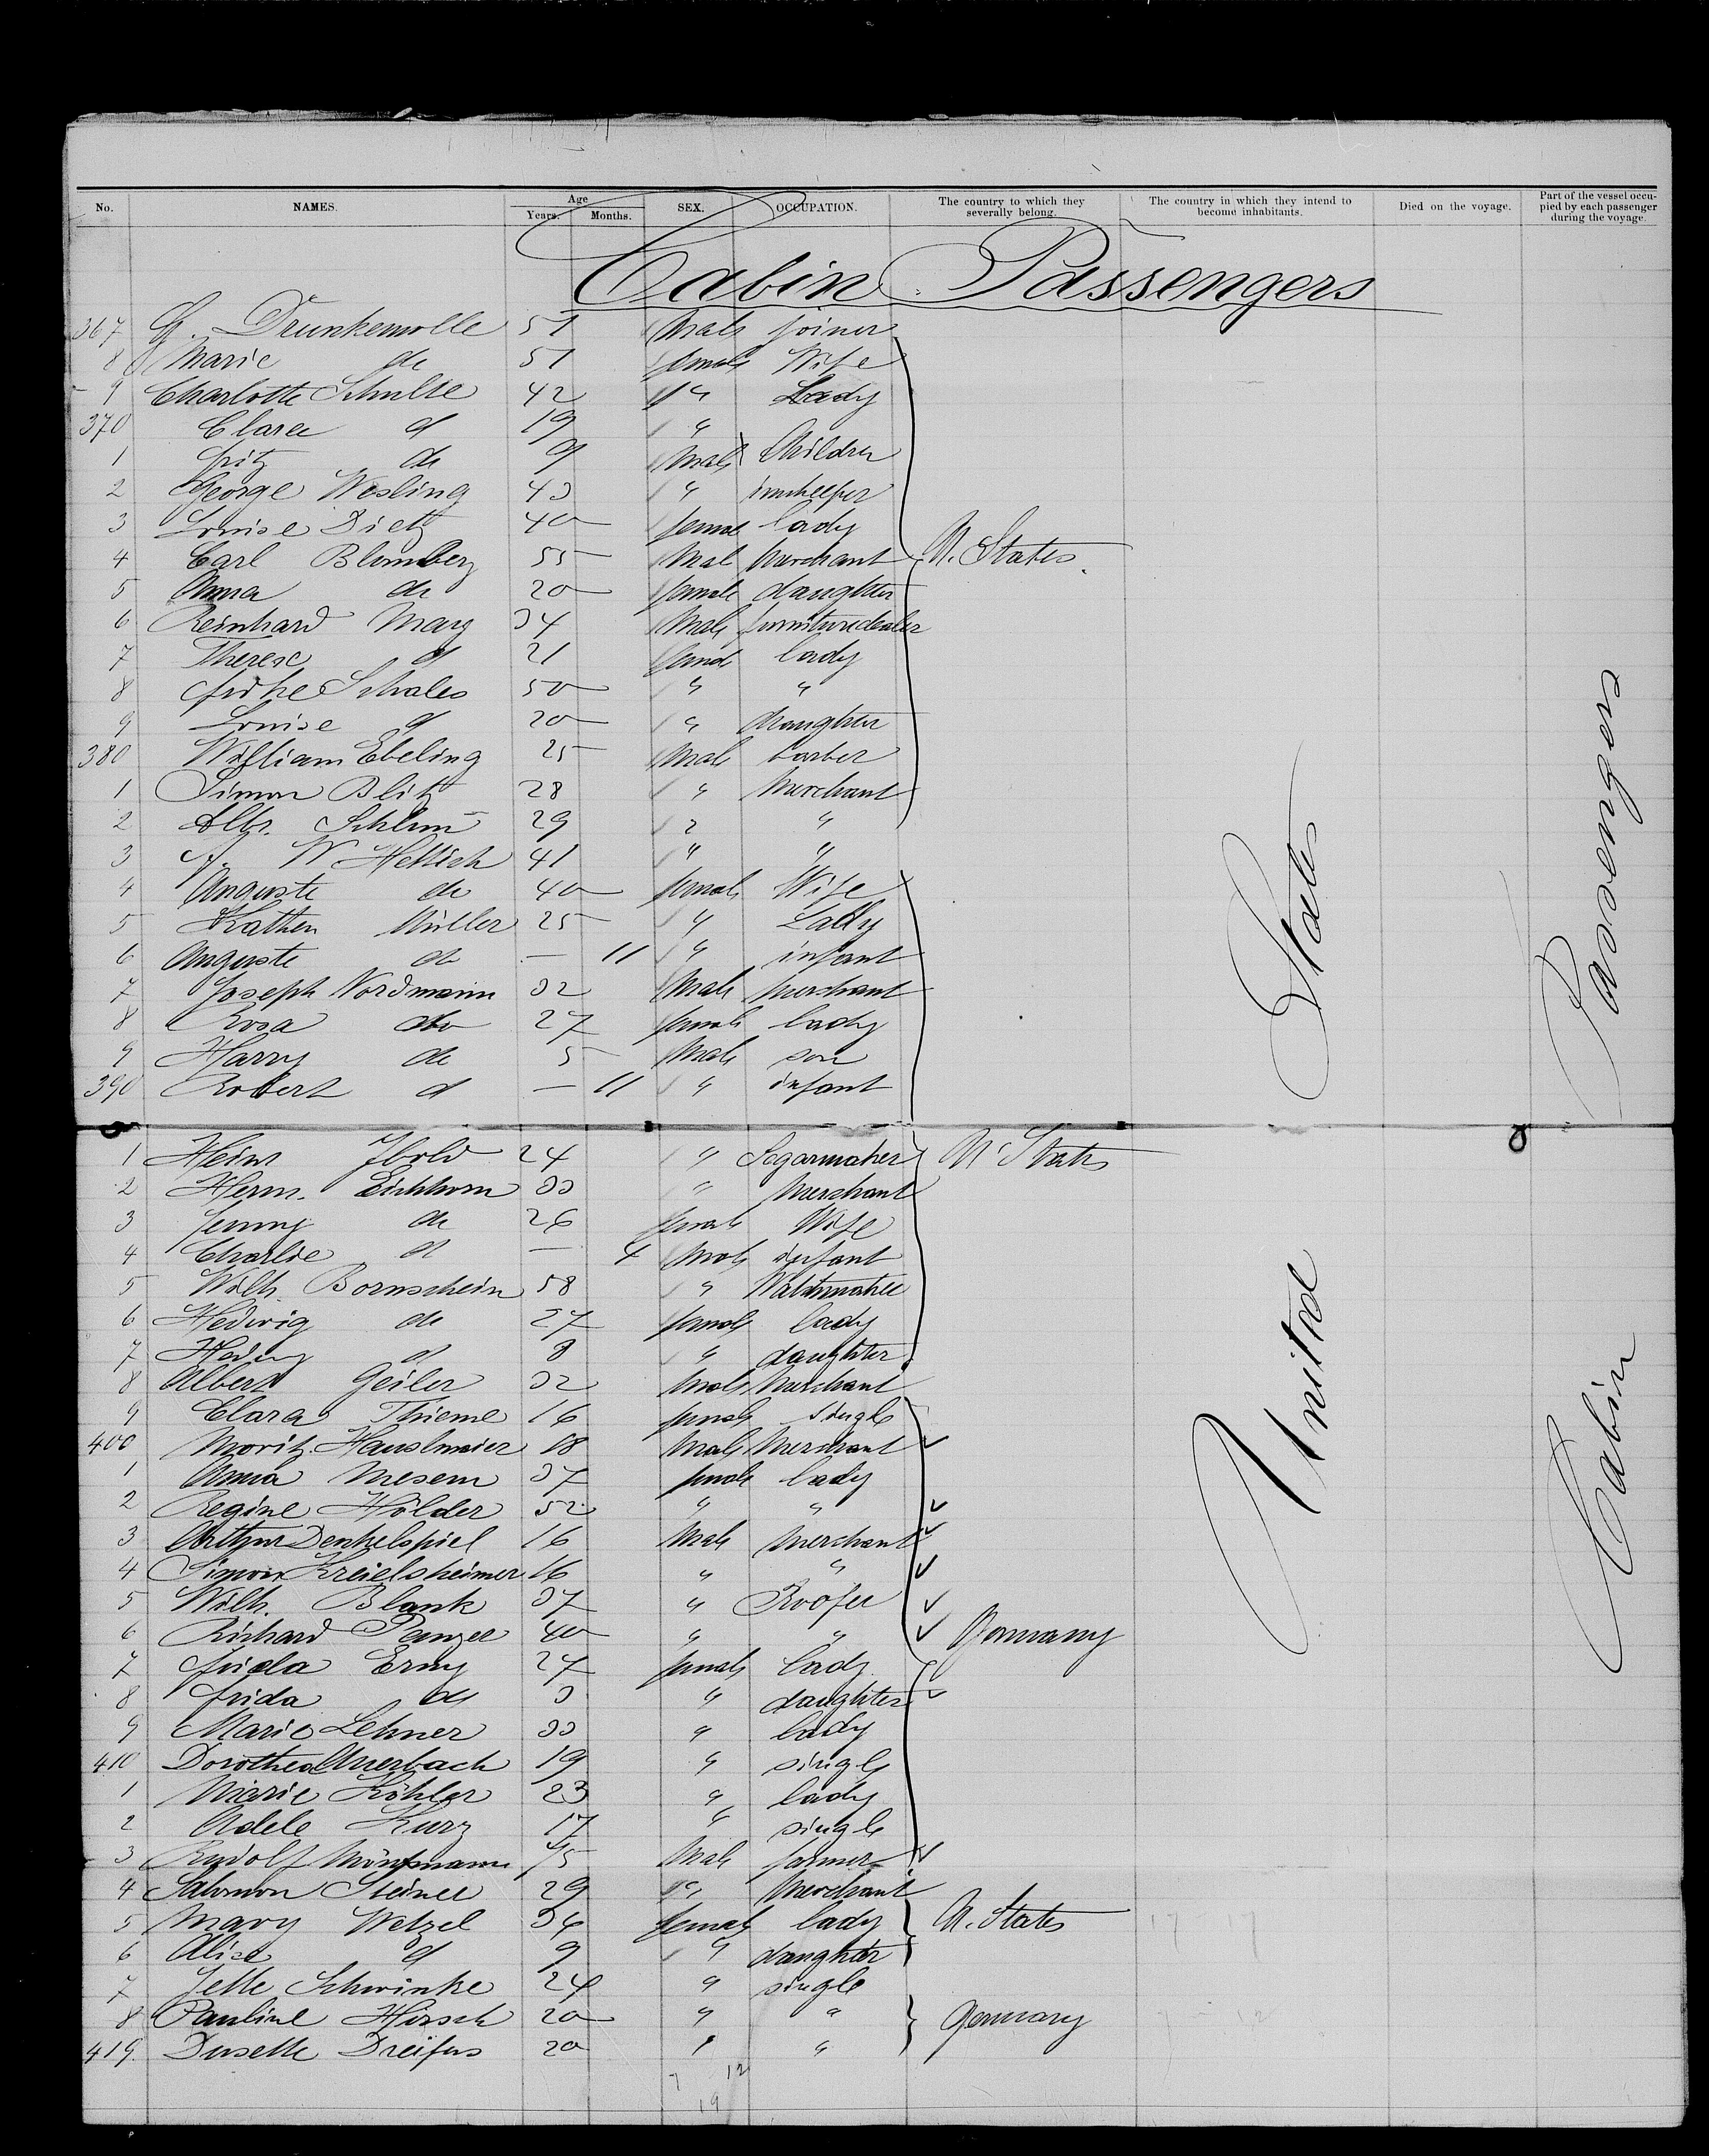 No. NAMES. Age Years. Months. SEX. OCCUPATION. The country to which they severally belong. The country in which they intend to become inhabitants. Died on the voyage. Part of the vessel occupied by each passenger during the voyage.
Cabin Passengers
367 G. Drunkemolle 51 Male joiner
8 Marie do 51 female Wife
9 Charlotte Schulze 42 " Lady
370 Clara d 19 "
1 Fritz do 9 Male Children
2 George Wesling 43 " innkeeper
3 Louise Dietz 40 female lady
4 Carl Blomberg 55 Male Merchant U. States.
5 Anna do 20 female daughter
6 Reinhard Mary 34 Male furnituredealer
7 Therese d 21 female lady
8 Schales 50 " "
9 Louise d 20 " daughter
380 William Ebeling 25 Male barber
1 Simon Blitz 28 " Merchant
2 Albr. 29 " "
3 W Hettich 41 " "
4 Auguste do 40 female Wife
5 Kathen Müller 25 " Lady
6 Auguste do — 11 " infant
7 Joseph Nordmann 32 Male merchant
8 Rosa do 27 female lady
9 Harry do 5 Male son
390 Robert d — 11 " infant
1 Heinr Ibold 24 " Segarmaker U States
2 Herm. Eichhorn 33 " Merchant
3 Jenny do 26 female Wife
4 Charlie d — 4 Male infant
5 Wilh. Bornschein 58 " Watchmaker
6 Hedwig do 27 female lady
7 Hedwig d 8 " daughter
8 Albert Geiler 32 Male Merchant
9 Clara Thieme 16 female single
400 Moritz Hauslmaier 18 Male Merchant
1 Anna Mesem 37 female lady
2 Regine Hölder 52 " "
3 Arthur Denkelspiel 16 Male Merchant
4 Simon Kreielsheimer 16 " "
5 Wilh. Blank 37 " Roofer
6 Richard Panzer 40 " " Germany
7 Frida Erny 24 female lady
8 Frida do 3 " daughter
9 Marie Lehner 33 " lady
410 Dorothea Auerbach 19 " single
1 Marie Köhler 23 " lady
2 Adele Kurz 17 " single
3 Rudolf 45 Male farmer
4 Salomon Steiner 29 " Merchant
5 Mary Wetzel 36 female lady U. States
6 Alice d 9 " daughter
7 Jette Schwinke 24 " single
8 Pauline Hirsch 20 " " Germany
419. Dusette Dreifus 20 " "
United States
Cabin Passengers
7 12
19